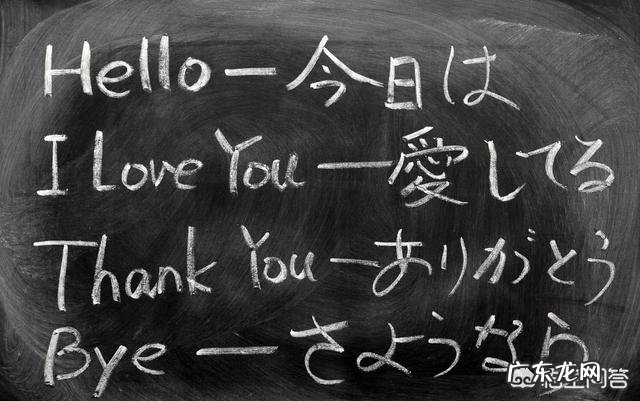 Hello — 今日は
I Love You — 愛してる
Thank You — ありがとう
Bye — さようなら
广东龙网